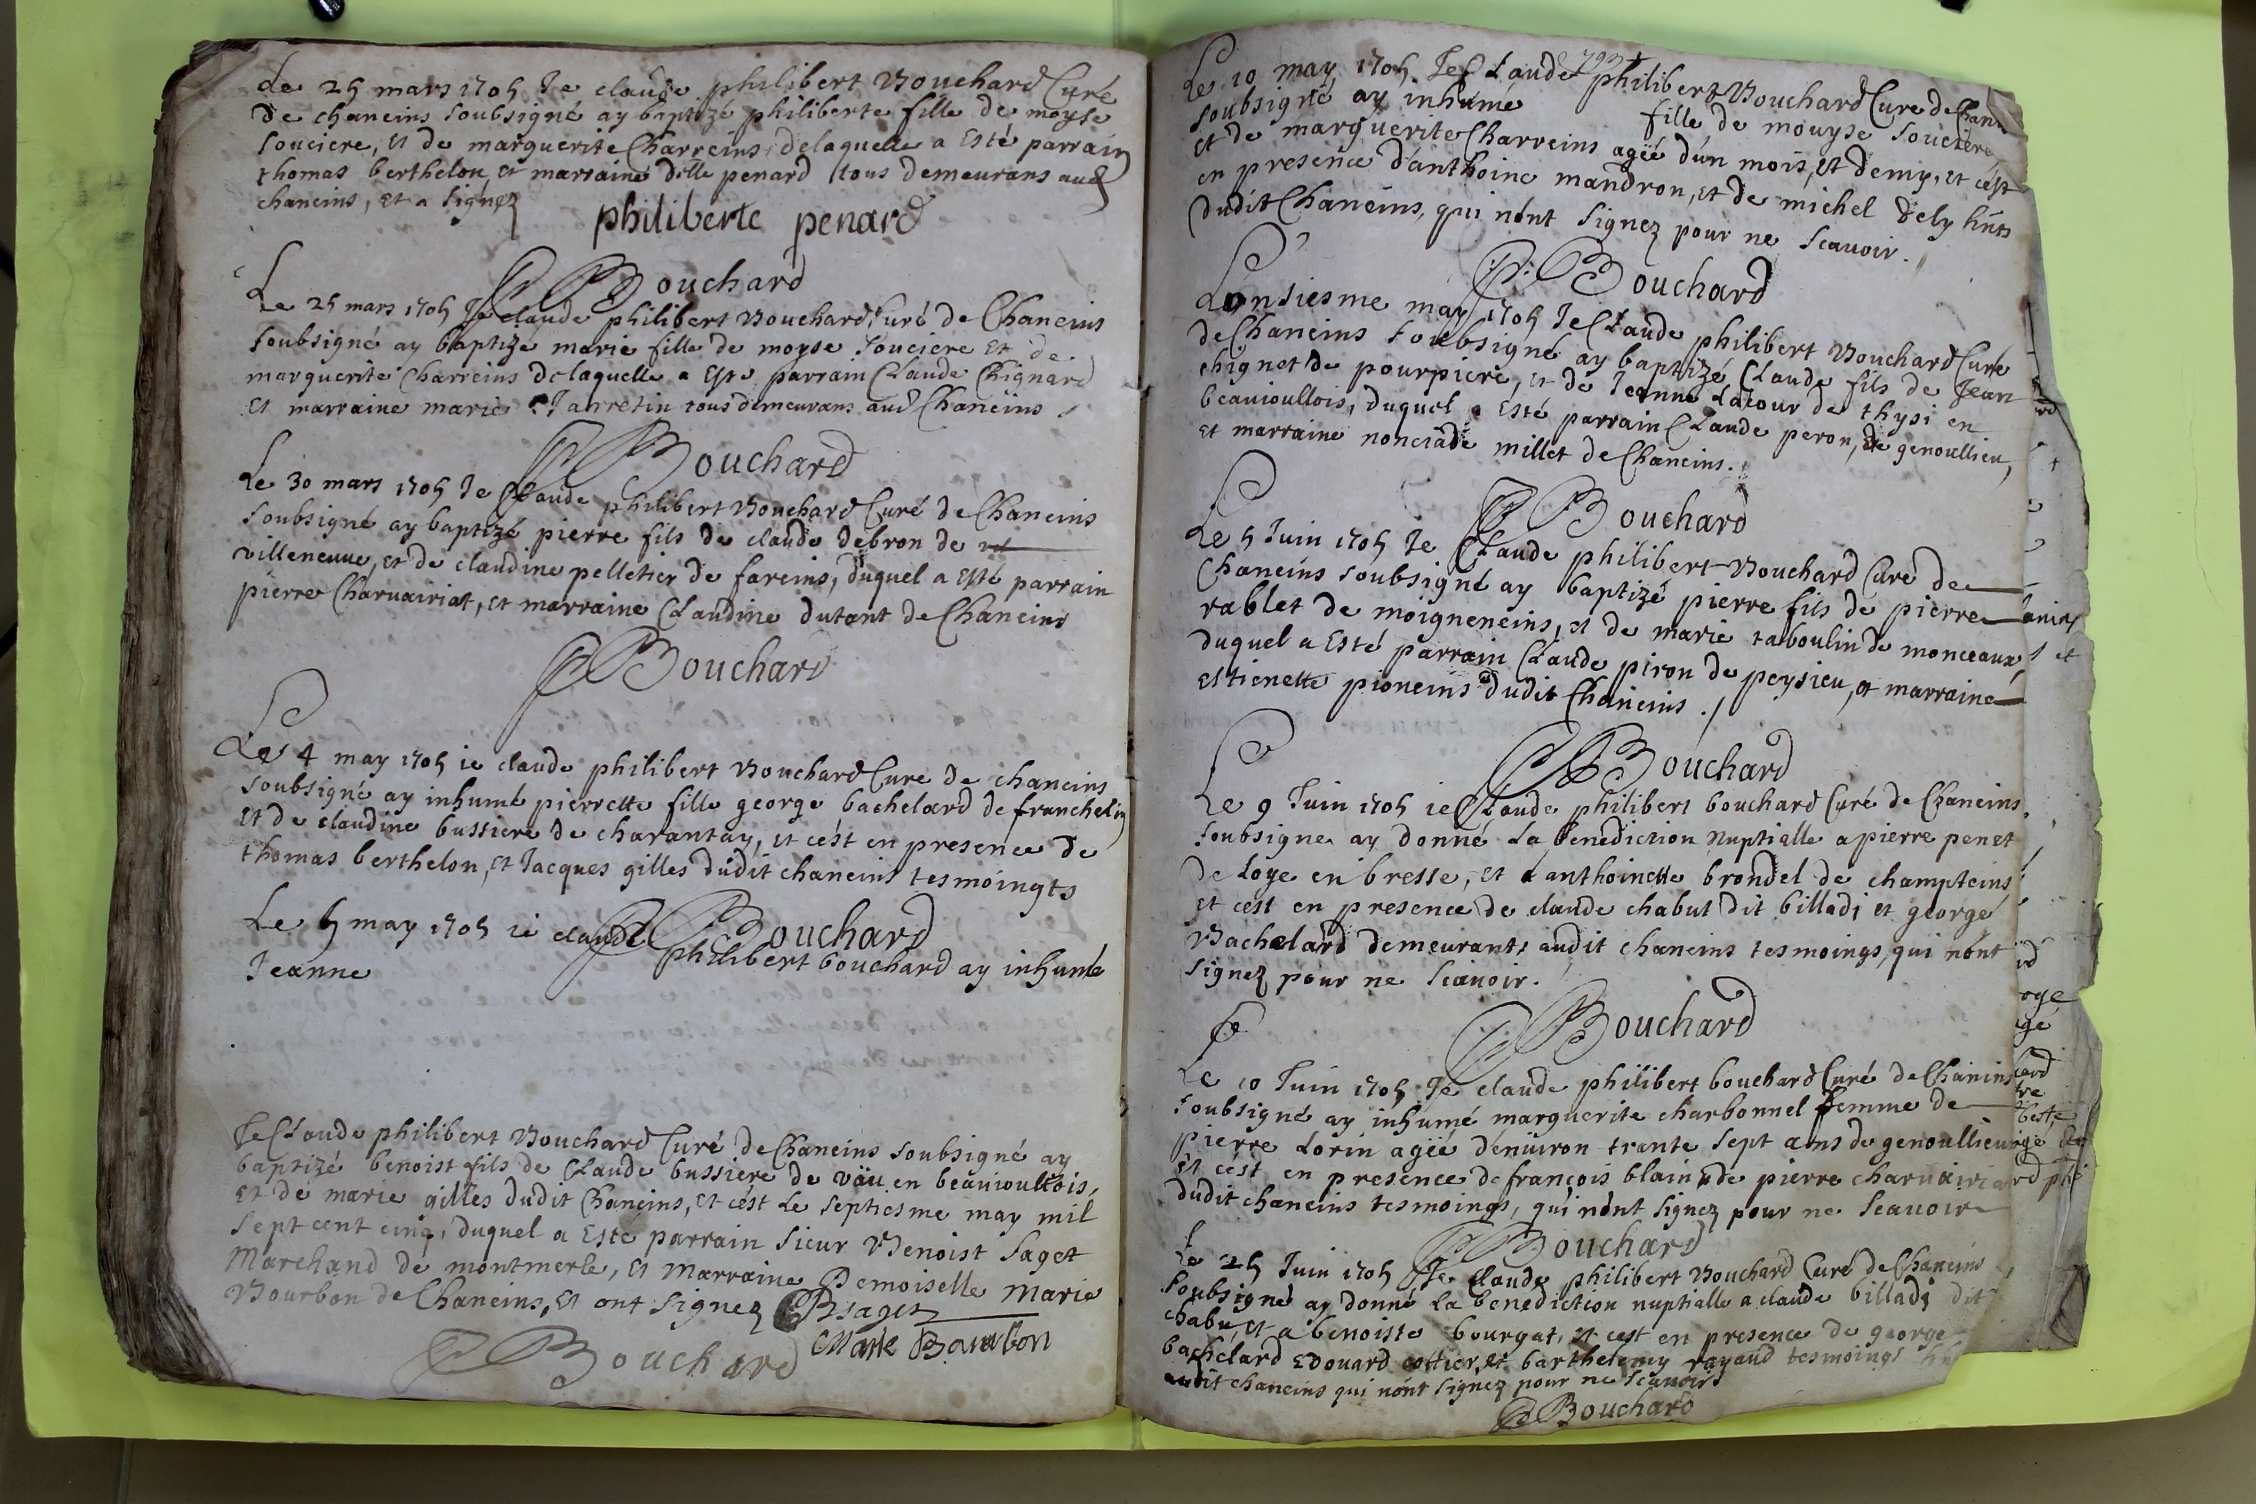 Le 25 mars 1705 Je claude philibert Bouchard Curé
de chaneins soubsigné ay baptizé philiberte fille de moyse
souciere, et de marguerite Charreins, delaquelle a esté parrain
thomas berthelon et marraine delle penard tous demeurans aud
chaneins, et a signez
philiberte penard
Bouchard
Le 25 mars 1705 Je claude philibert Bouchard Curé de Chaneins
soubsigné ay baptizé marie fille de moyse souciere et de
marguerite Charreins delaquelle a esté parrain Claude Chignard
et marraine marie Jarretin tous demeurans aud Chaneins
Bouchard
Le 30 mars 1705 Je Claude philibert Bouchard Curé de Chaneins
soubsigné ay baptizé pierre fils de claude debron de
villeneuve, et de claudine pelletier de fareins, duquel a esté parrain
pierre Charvairiat, et marraine Claudine dutant de Chaneins
Bouchard
Le 4 may 1705 ie claude philibert Bouchard Curé de chaneins
soubsigné ay inhumé pierrette fille george bachelard de franchelin
et de claudine bussiere de charantay, et cést en presence de
thomas berthelon, et Jacques gilles dudit chaneins tesmoingts
Bouchard
Le 5 may 1705 ie claude philibert bouchard ay inhumé
Jeanne
Je Claude philibert Bouchard Curé de Chaneins soubsigné ay
baptizé benoist fils de Claude bussiere de vau en beauioullois,
et de marie gilles dudit Chaneins, et cést le septiesme may mil
sept cent cinq, duquel a esté parrain sieur Benoist saget
Marchand de montmerle, et Marraine Demoiselle Marie
Bourbon de Chaneins, et ont signez Bsaget
Marie Bourbon
Bouchard
793
Le 10 may 1705 Je Claude philibert Bouchard Cure de Chan
soubsigné ay inhumé fille de mouyse souciere
et de marguerite Charreins agéé dún mois, et demy, et cést
en presence dánthoine mandron, et de michel dely
dudit Chaneins, qui nónt signez pour ne scavoir.
Bouchard
Lonsiesme may 1705 Je Claude philibert Bouchard Curé
de Chaneins soubsigné ay baptizé Claude fils de Jean
chignet de pourpiere, et de Jeanne Latour de thysi en
beauioullois, duquel a esté parrain Claude peron, de genoullieu,
et marraine nonciade millet de Chaneins.
Bouchard
Le 5 Juin 1705 Je Claude philibert Bouchard Curé de
Chaneins soubsigné ay baptizé pierre fils de pierre
rablet de moigneneins, et de marie taboulin de monceaux,
duquel a esté parrain Claude piron de peysieu, et marraine
estienette pioneins dudit Chaneins.
Bouchard
Le 9 Juin 1705 ie Claude philibert bouchard Curé de Chaneins
soubsigné ay donné la benediction nuptialle a pierre penet
de Loye en bresse, et a anthoinette brondel de champteins
et cést en presence de claude chabut dit billadi et george
Bachelard demeurants audit chaneins tesmoings, qui nónt
signez pour ne scavoir.
Bouchard
Le 10 Juin 1705 Je claude philibert bouchard Curé de Chanins
soubsigné ay inhumé marguerite charbonnel femme de
pierre Lorin agéé dénuiron trante sept ans de genoullieu
et cést en presence de françois blain, de pierre charvairia
dudit chaneins tesmoings, qui nónt signez pour ne scavoir
Bouchard
Le 25 Juin 1705 Je Claude philibert Bouchard Curé de Chaneins
soubsigné ay donné la benediction nuptialle a claude billadi dit
chabu, et a benoiste bourgat, et cest en presence de george
bachelard Edouard cottier, et barthelemy rayaud tesmoings
audit chaneins qui nónt signez pour ne scavoir
Bouchard